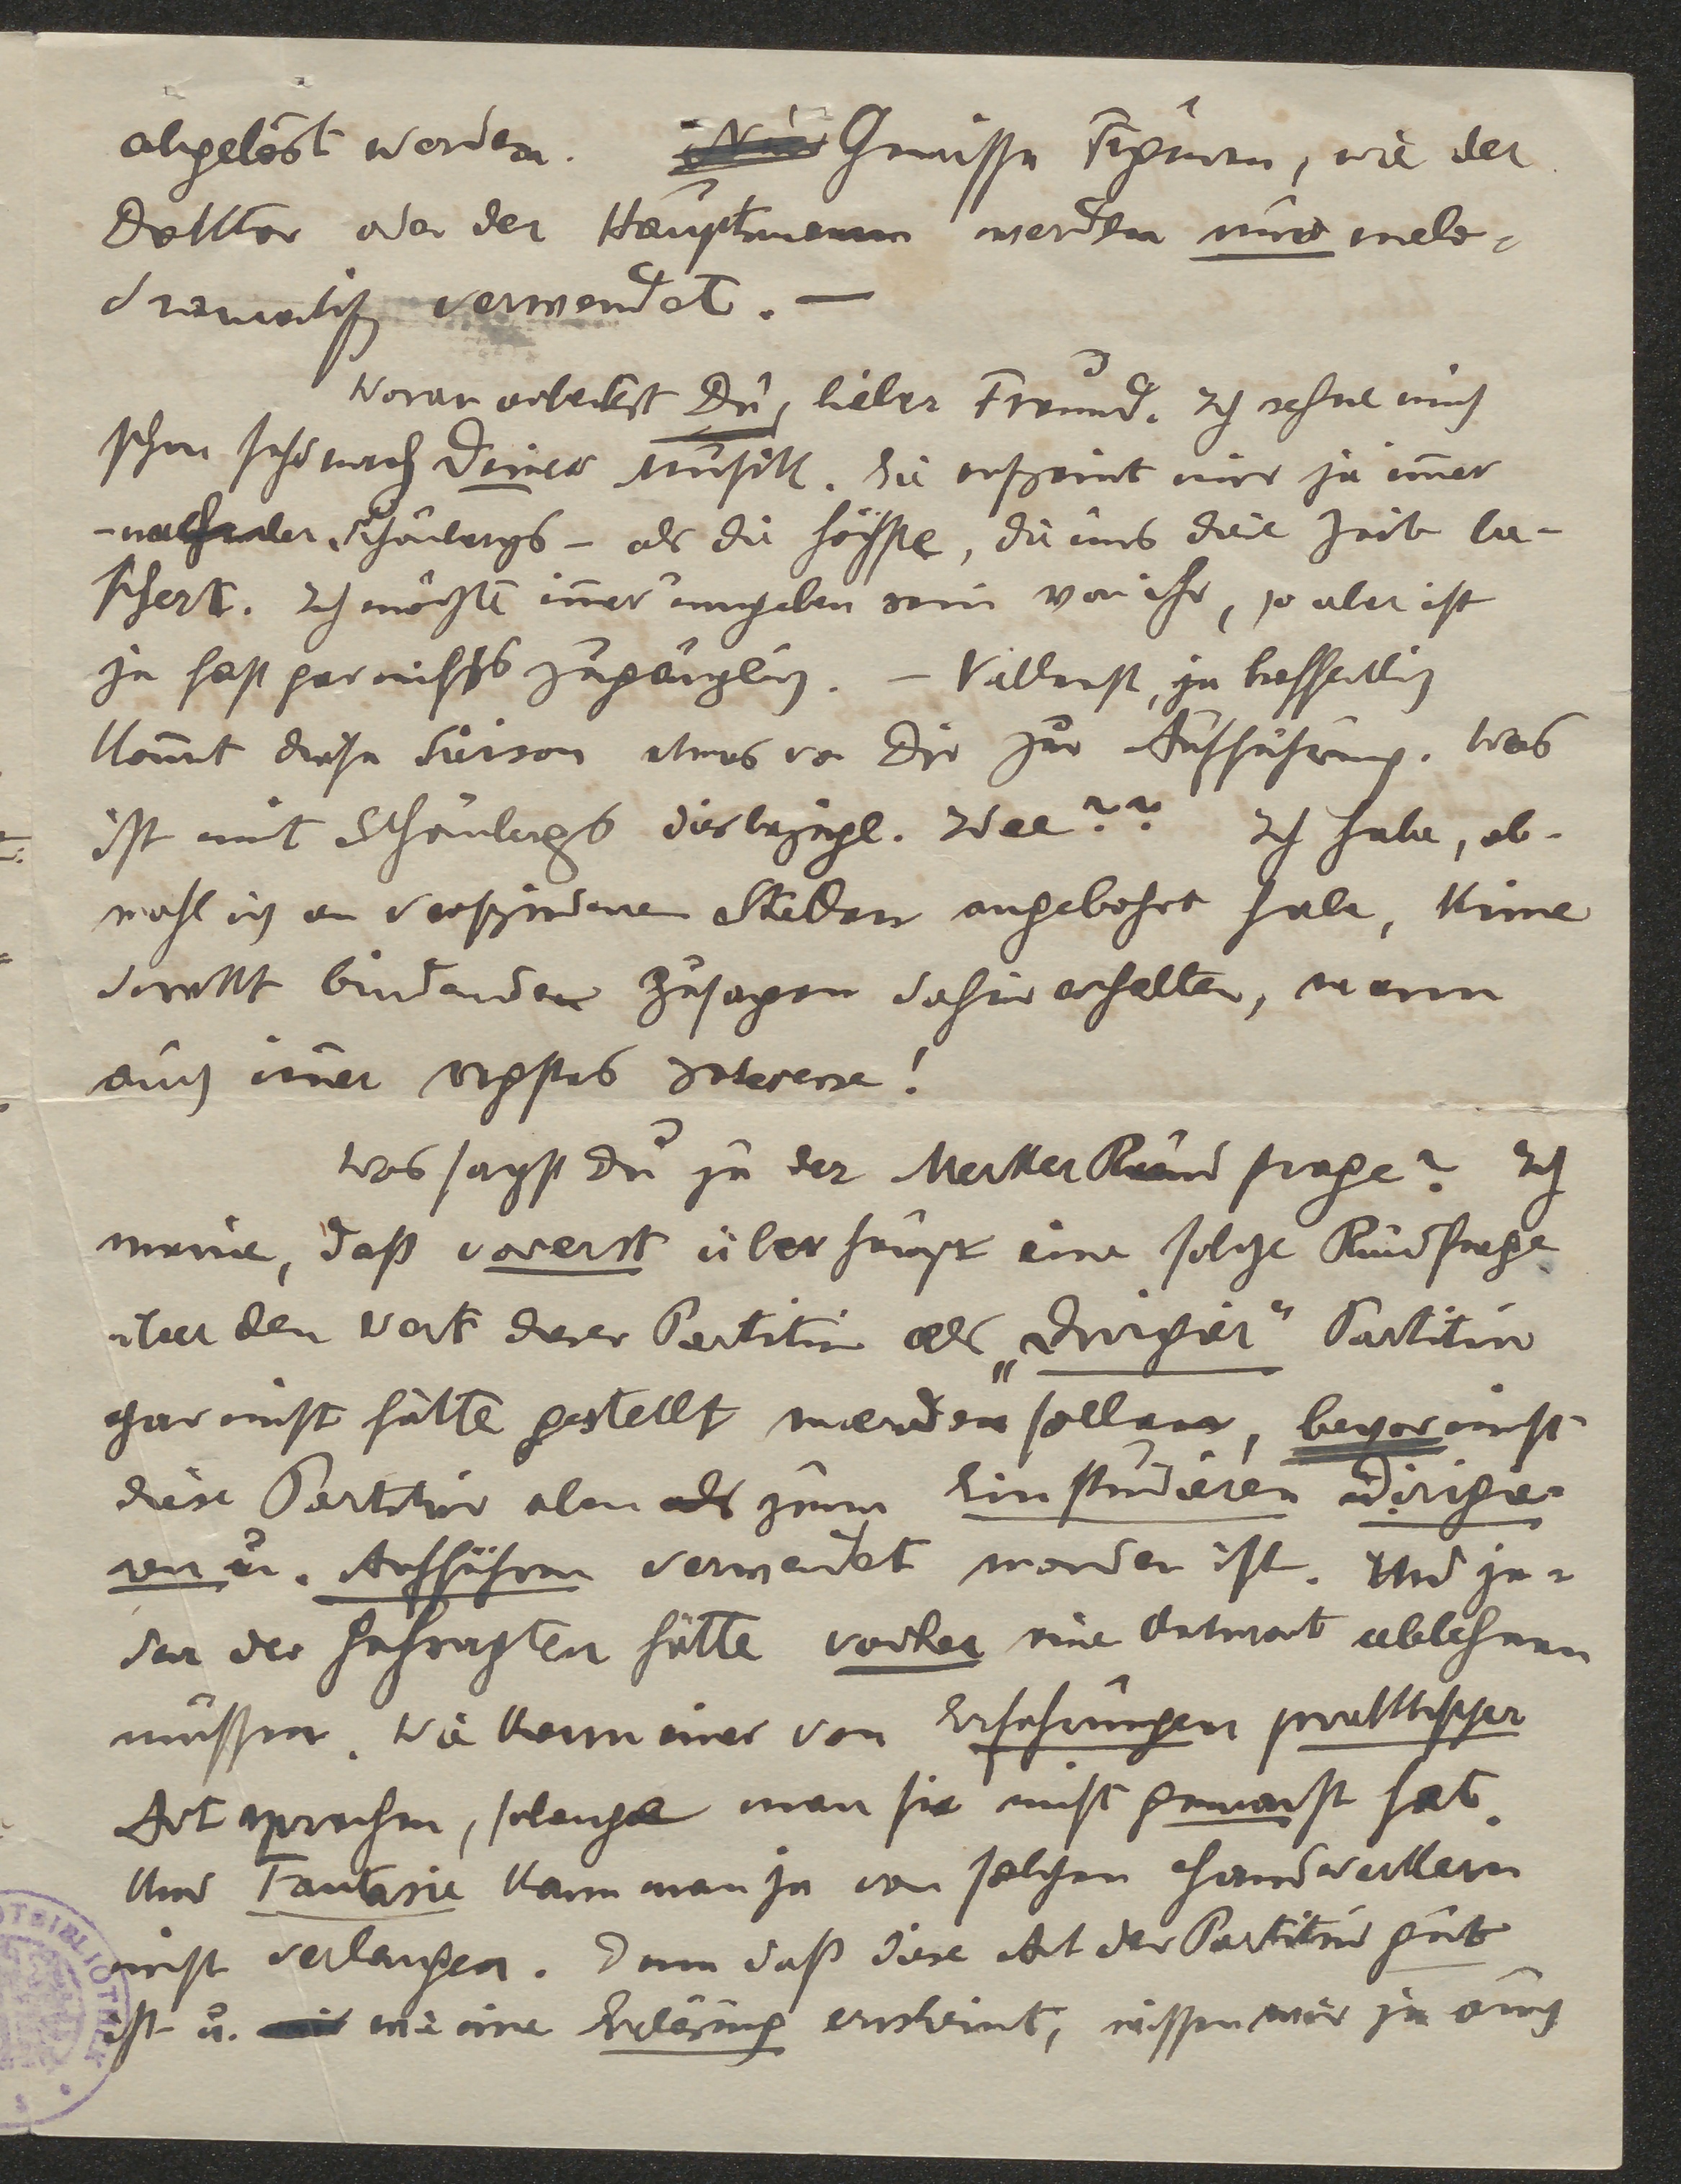 abgelöst werden. Gewisse Figuren, wie der
Doktor oder der Hauptmann werden nur melo-
dramatisch verwendet. —
Woran arbeitest Du, lieber Freund. Ich sehne mich
schon sehr nach Deiner Musik. Sie erscheint mir ja im̄er
– nach der Schönbergs – als die höchste, die uns diese Zeit be-
schert. Ich möchte im̄er umgeben sein von ihr, so aber ist
ja fast gar nichts zugänglich. – Vielleicht, ja hoffentlich
kom̄t diese Saison etwas von Dir zur Aufführung. Was
ist mit Schönbergs diesbezügl. Idee?? Ich habe, ob-
wohl ich an verschiedenen Stellen angebohrt habe, keine
direkt bindenden Zusagen dafür erhalten, wenn
auch im̄er regstes Interesse!
Was sagst Du zu der Merker Rundfrage? Ich
meine, daß vorerst überhaupt eine solche Rundfrage
über den Wert dieser Partitur als „Dirigier" Partitur
gar nicht hätte gestellt werden sollen, bevor nicht
diese Partitur eben zum Einstudieren Dirigie-
ren u. Aufführen verwendet worden ist. Und je-
der der Gefragten hätte vorher eine Antwort ablehnen
müssen. Wie kann einer von Erfahrungen praktischer
Art sprechen, solange man sie nicht gemacht hat.
Und Fantasie kann man ja von solchen Handwerkern
nicht verlangen. Denn daß diese Art der Partitur gut
ist u. wie eine Erlösung erscheint, wissen wir ja auch